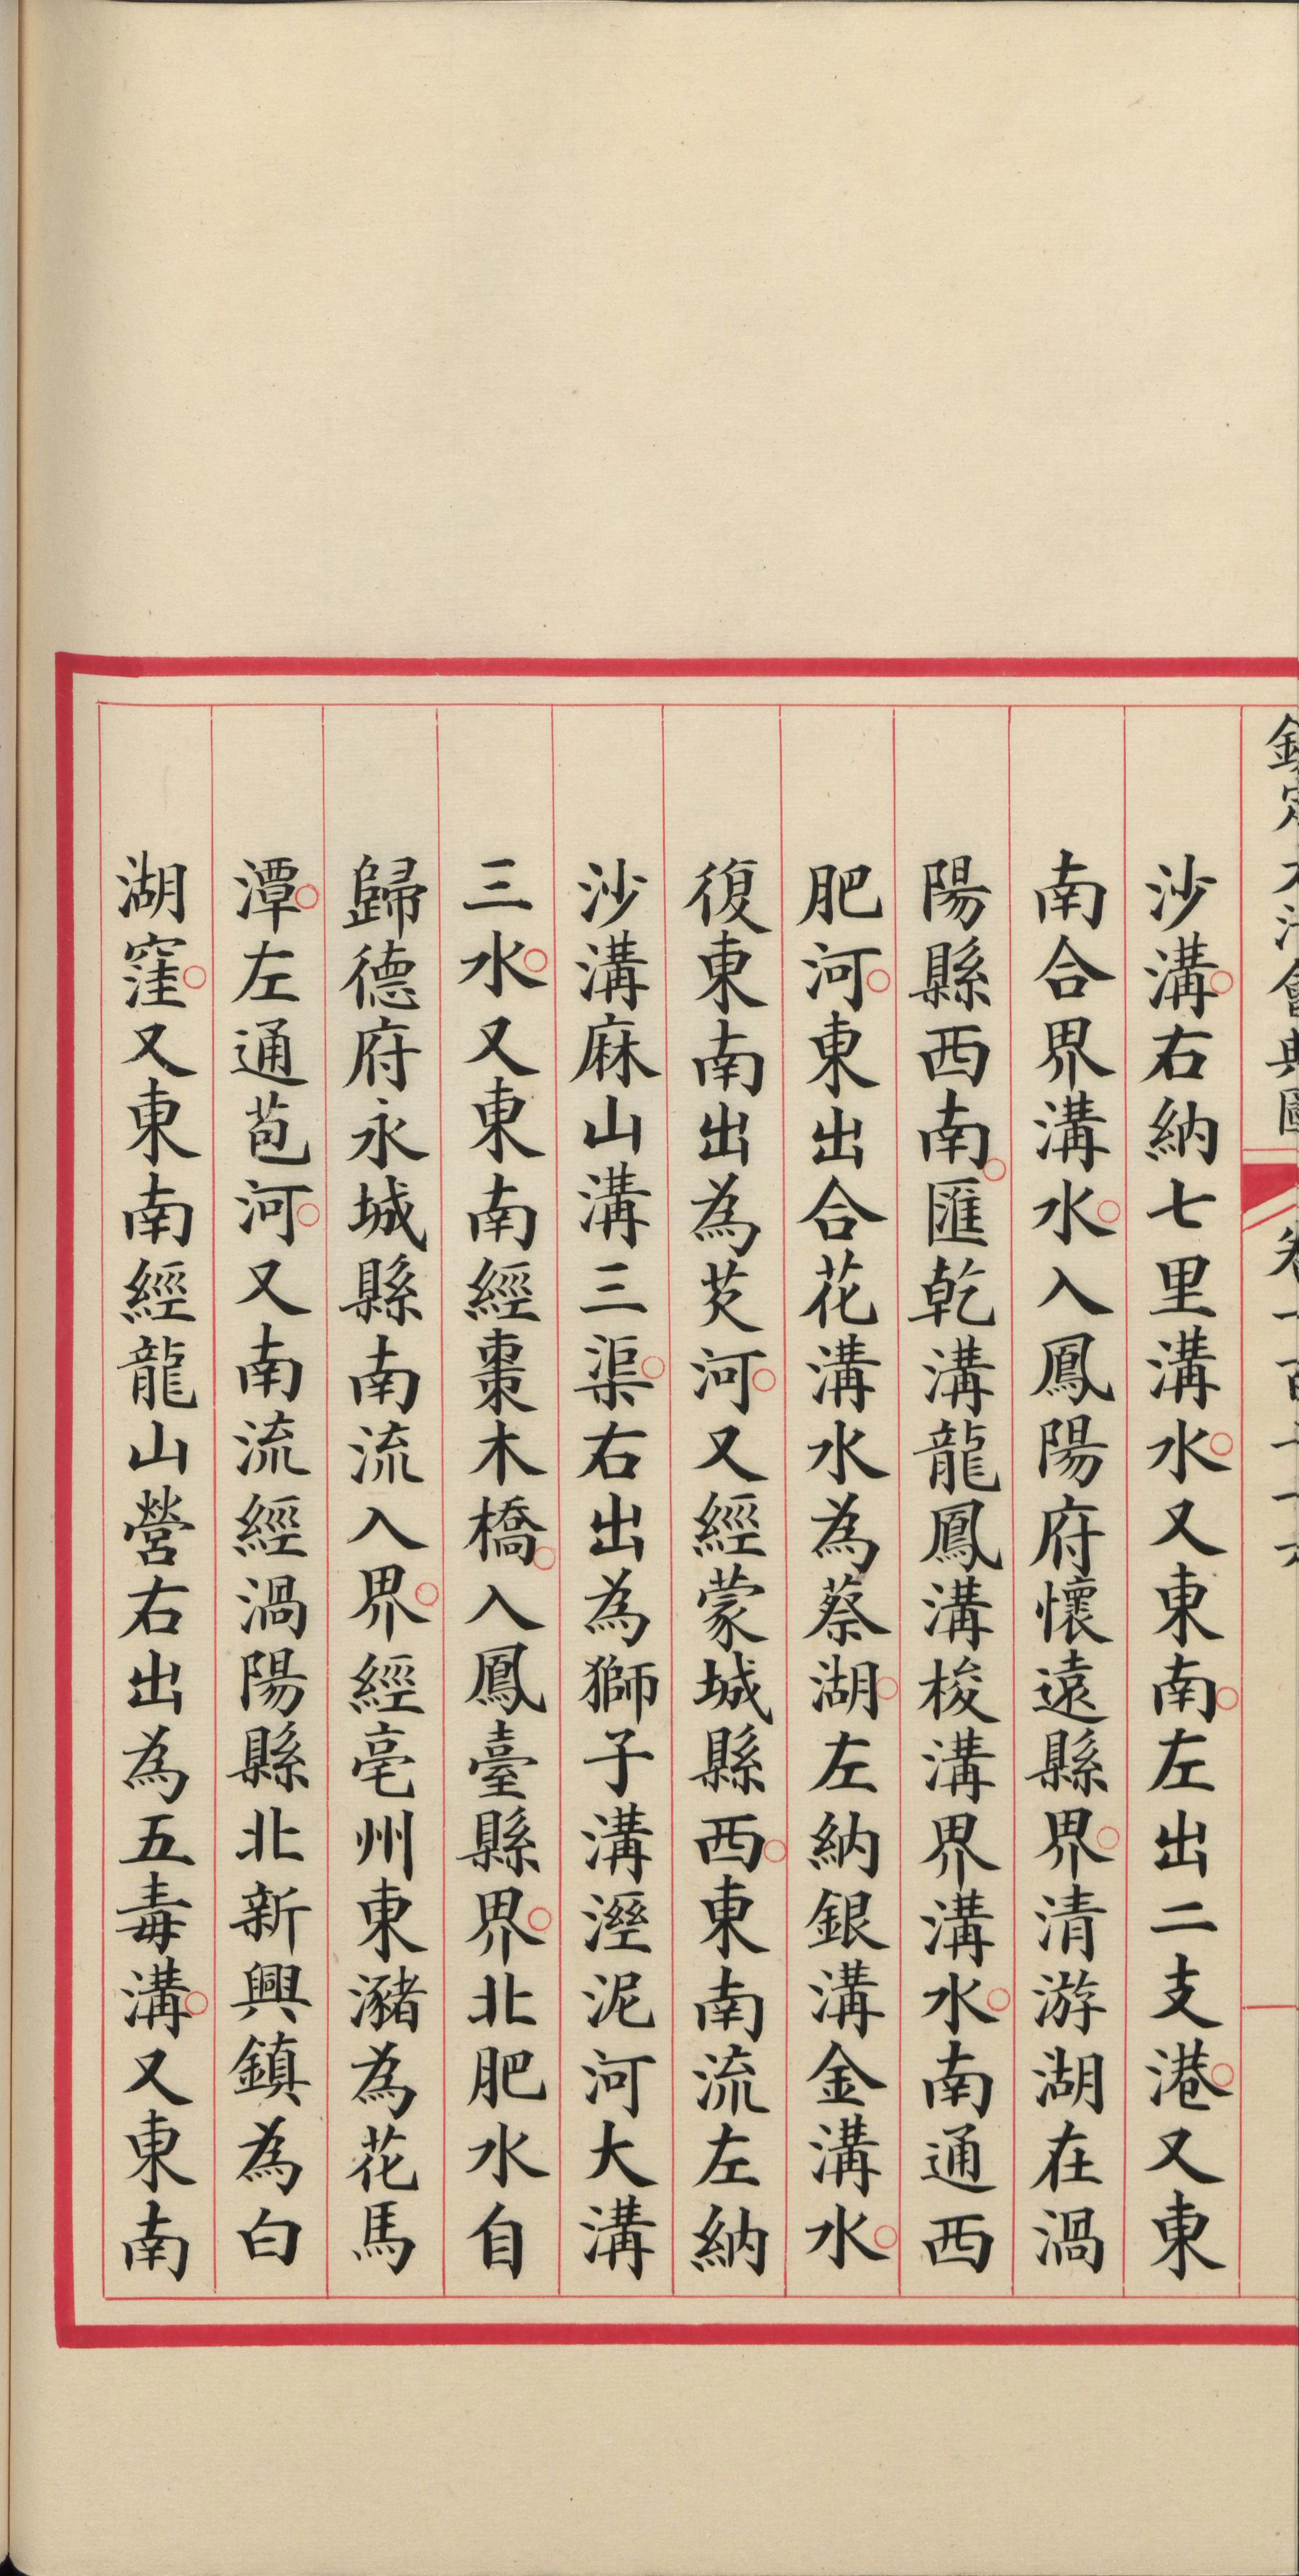 沙溝。右納七里溝水。又東南。左出二支港。又東
南合界溝水。入鳳陽府懷遠縣界。清游湖在渦
陽縣西南。匯乾溝龍鳳溝梭溝界溝水。南通西
肥河。東出合花溝水為蔡湖。左納銀溝金溝水。
復東南出為芡河。又經蒙城縣西。東南流左納
沙溝麻山溝三渠。右出為獅子溝溼泥河大溝
三水。又東南經棗木橋。入鳳臺縣界。北肥水自
歸德府永城縣南流入界。經亳州東瀦為花馬
潭。左通苞河。又南流經渦陽縣北新興鎮為白
湖窪。又東南經龍山營右出為五毒溝。又東南